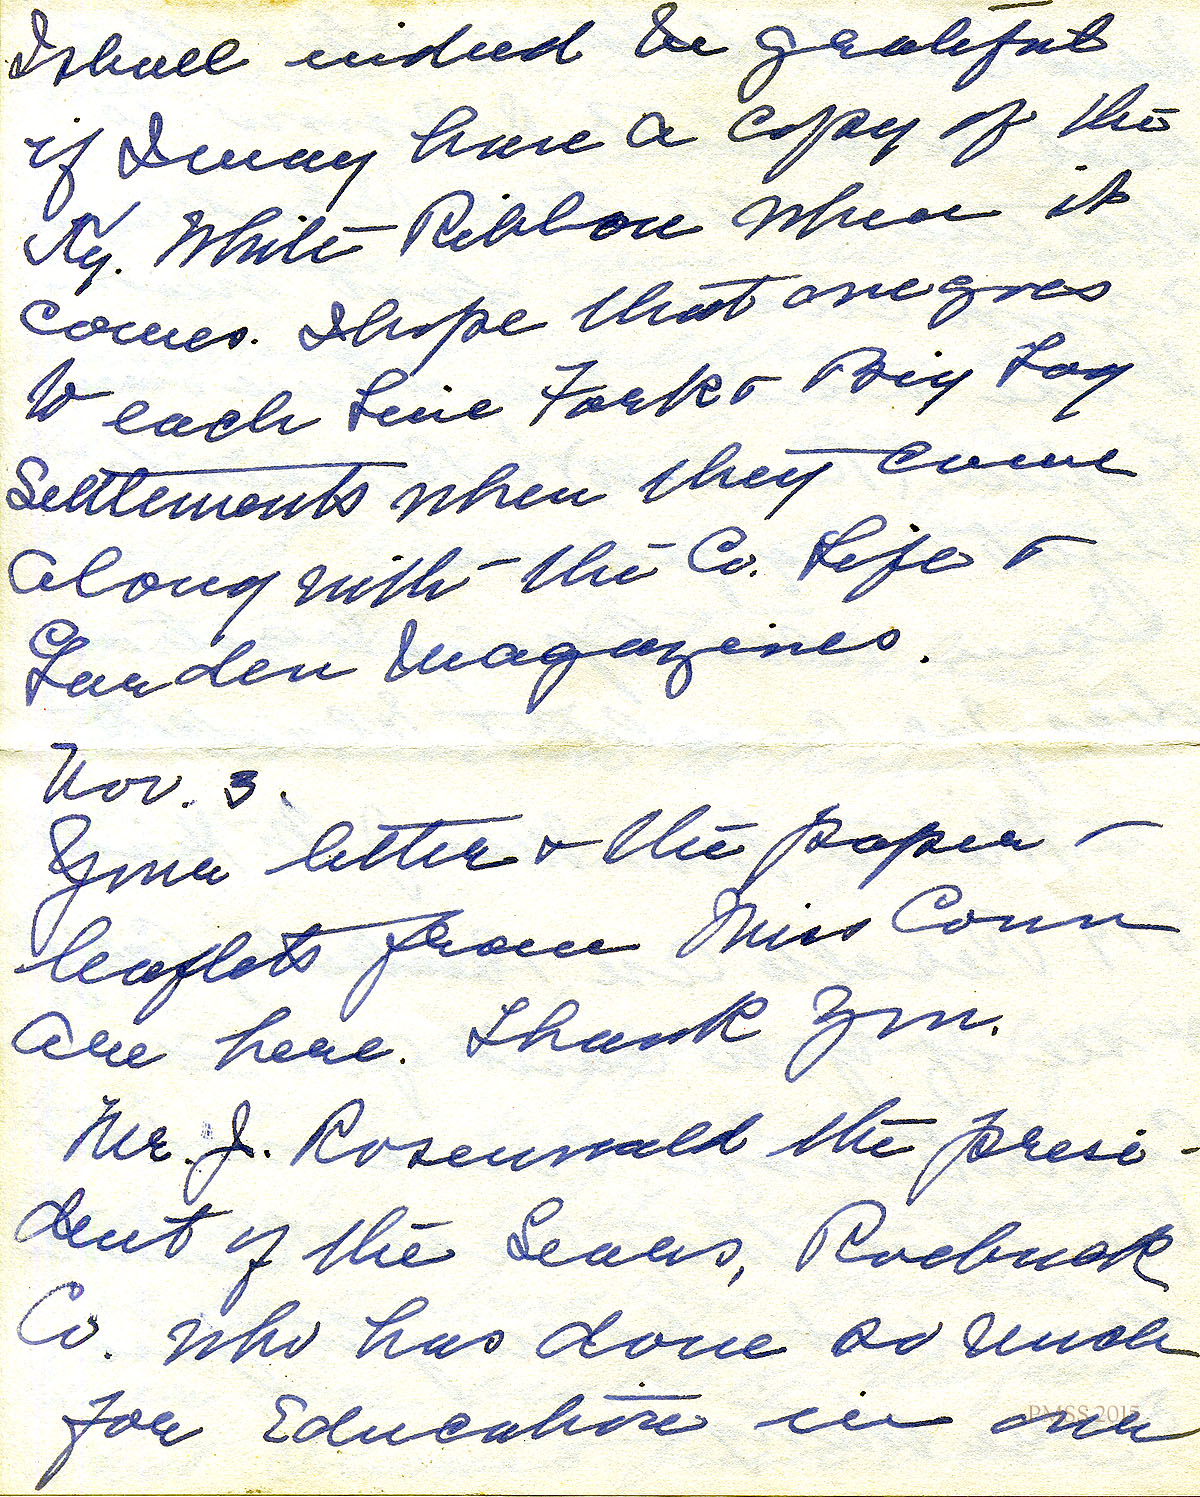 I shall indeed be grateful
if I may have a copy of the
Ky. White Ribbon when it
comes. I hope that one goes
to each Line Fork & Big Log
Settlements when they come
along with the Co. Life &
Garden Magazines.
Nov. 3.
Your letter & the paper -
leaflets from Miss Conn
are here. Thank you.
Mr. J. Rosenwald the presi-
dent of the Sears, Roebuck
Co. who has done so much
for Education in our
PMSS 2015